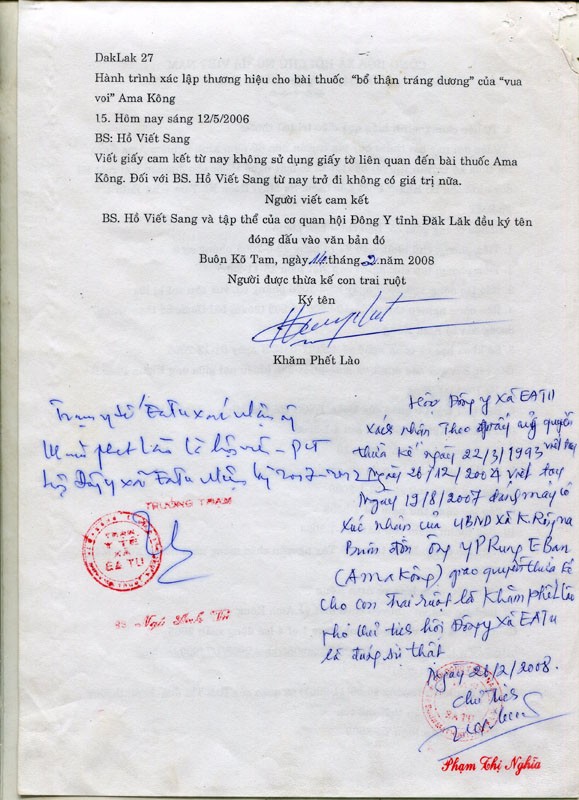 DakLak 27
Hành trình xác lập thương hiệu cho bài thuốc “bổ thận tráng dương” của “vua
voi” Ama Kông
15. Hôm nay sáng 12/5/2006
BS: Hồ Viết Sang
Viết giấy cam kết từ nay không sử dụng giấy tờ liên quan đến bài thuốc Ama
Kông. Đối với BS. Hồ Viết Sang từ nay trở đi không có giá trị nữa.
Người viết cam kết
BS. Hồ Viết Sang và tập thể của cơ quan hội Đông Y tỉnh Đăk Lăk đều ký tên
đóng dấu vào văn bản đó
Buôn Kõ Tam, ngày 14 tháng 2 năm 2008
Người được thừa kế con trai ruột
Ký tên
Khăm Phết Lào
Trạm y tế EaTu xác nhận ông
Khăm phết Lào là hội viên - pct
hội Đông y xã EaTu nhiệm kỳ 2007-2012
TRƯỞNG TRẠM
TRẠM
Y TẾ
XÃ
EA TU
Hội Đông y xã EATU
xác nhận Theo giấy uỷ quyền
thừa kế ngày 22/3/1993 viết tay
Ngày 26/12/2004 viết tay
Ngày 19/8/2007 đánh máy có
xác nhận của UBND xã KRôngna
Buôn đôn ông YPRung EBan
(AmaKông) giao quyền thừa kế
cho con Trai ruột là Khăm phết Lào
phó chủ tịch hội Đông y xã EATu
là đúng sự thật
Ngày 26/2/2008.
Chủ tịch
Phạm Thị Nghĩa